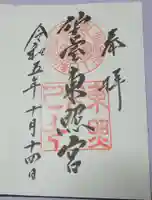 奉拝
仙臺東照宮
令和五年十月十四日